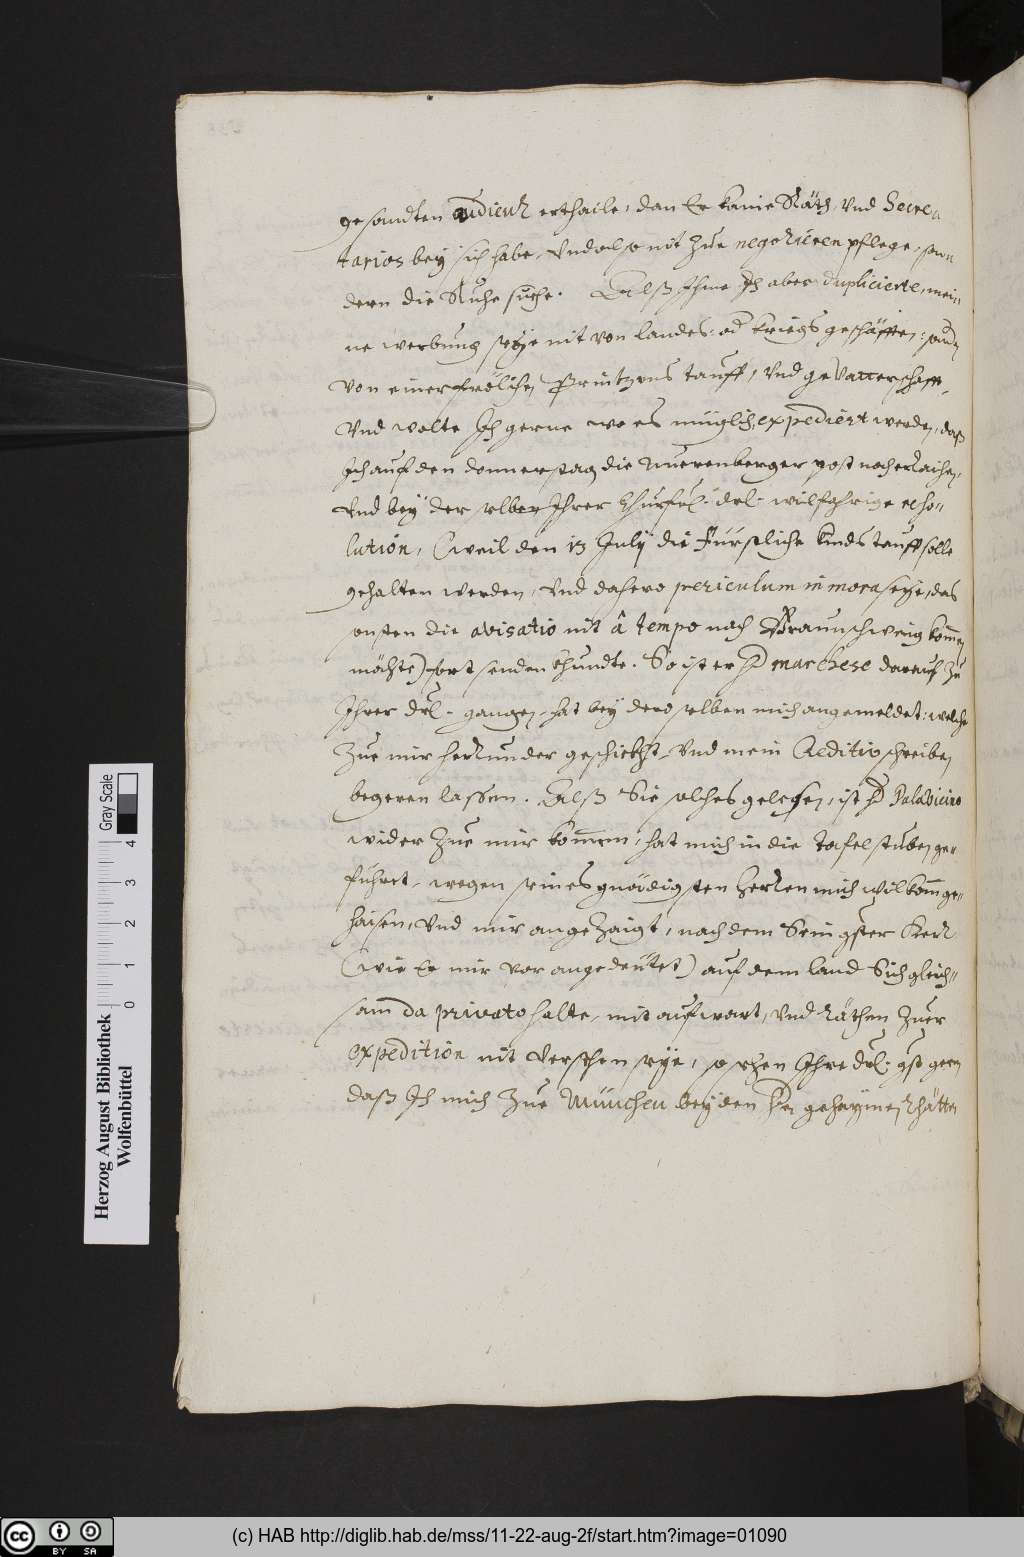 gesandten audientz erthaile, dan Er kaine Räth, vnd Secre-
tarios bey sich habe, vnd also nit zue negotiieren pflege, son-
dern die Ruhe suche. Alß Ihme Ich aber duplicierte, mei-
ne werbung seye nit von landes: od kriegs geschäfften: sondn
von einer frölichen Printzens tauff, vnd gevatterschafft,
vnd wolte Ich gerne wo es müglich, expediert werden, daß
Ich auf den donnerstag die Nuerenberger post noch erraichen,
vnd bey derselben Ihrer Churfrl. drl. wilfahrige reso-
lution, (weil den 13 July die Fürstliche kindstauff solle
gehalten werden, vnd dahero periculum in mora seye, das
onsten die avisatio nit â tempo nach Braunschweig kommen
möchte) fort senden khundte. So ist er H marchese darauf zu
Ihrer drl. gangen, hat bey deroselben mich angemeldet: welche
zue mir herunder geschickht, vnd mein Creditiv schreiben
begeren lassen. Alß Sie solches gelesen, ist H Palavicino
wider zue mir kommen, hat mich in die tafelstuben ge-
führet, wegen seines gnädigsten herren mich wilkomm ge-
haisen, vnd mir angezaigt, nach dem Sein gster Herr
(wie Er mir vor angedeütet) auf dem land Sich gleich-
sam da privato halte, mit aufwart, vnd räthen zuer
expedition nit versehen seye, so sehen Ihre drl. gst gern
daß Ich mich zue München bey den Hn gehaymen Rhätten
Herzog August Bibliothek
Wolfenbüttel
Gray Scale
0 1 2 3 4
CC BY SA
(c) HAB http://diglib.hab.de/mss/11-22-aug-2f/start.htm?image=01090